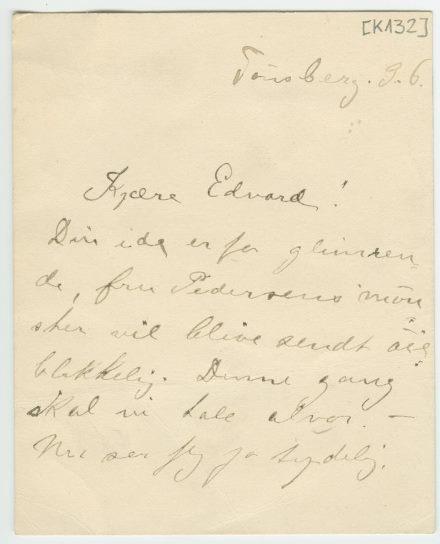 [K132]
Tönsberg. 3.6.
Kjære Edvard!
Din ide er jo glimren-
de, fru Pedersens mön-
ster vil blive sendt öie
blikkelig. Denne gang
skal vi tale alvor. —
Nu ser jeg jo tydelig,